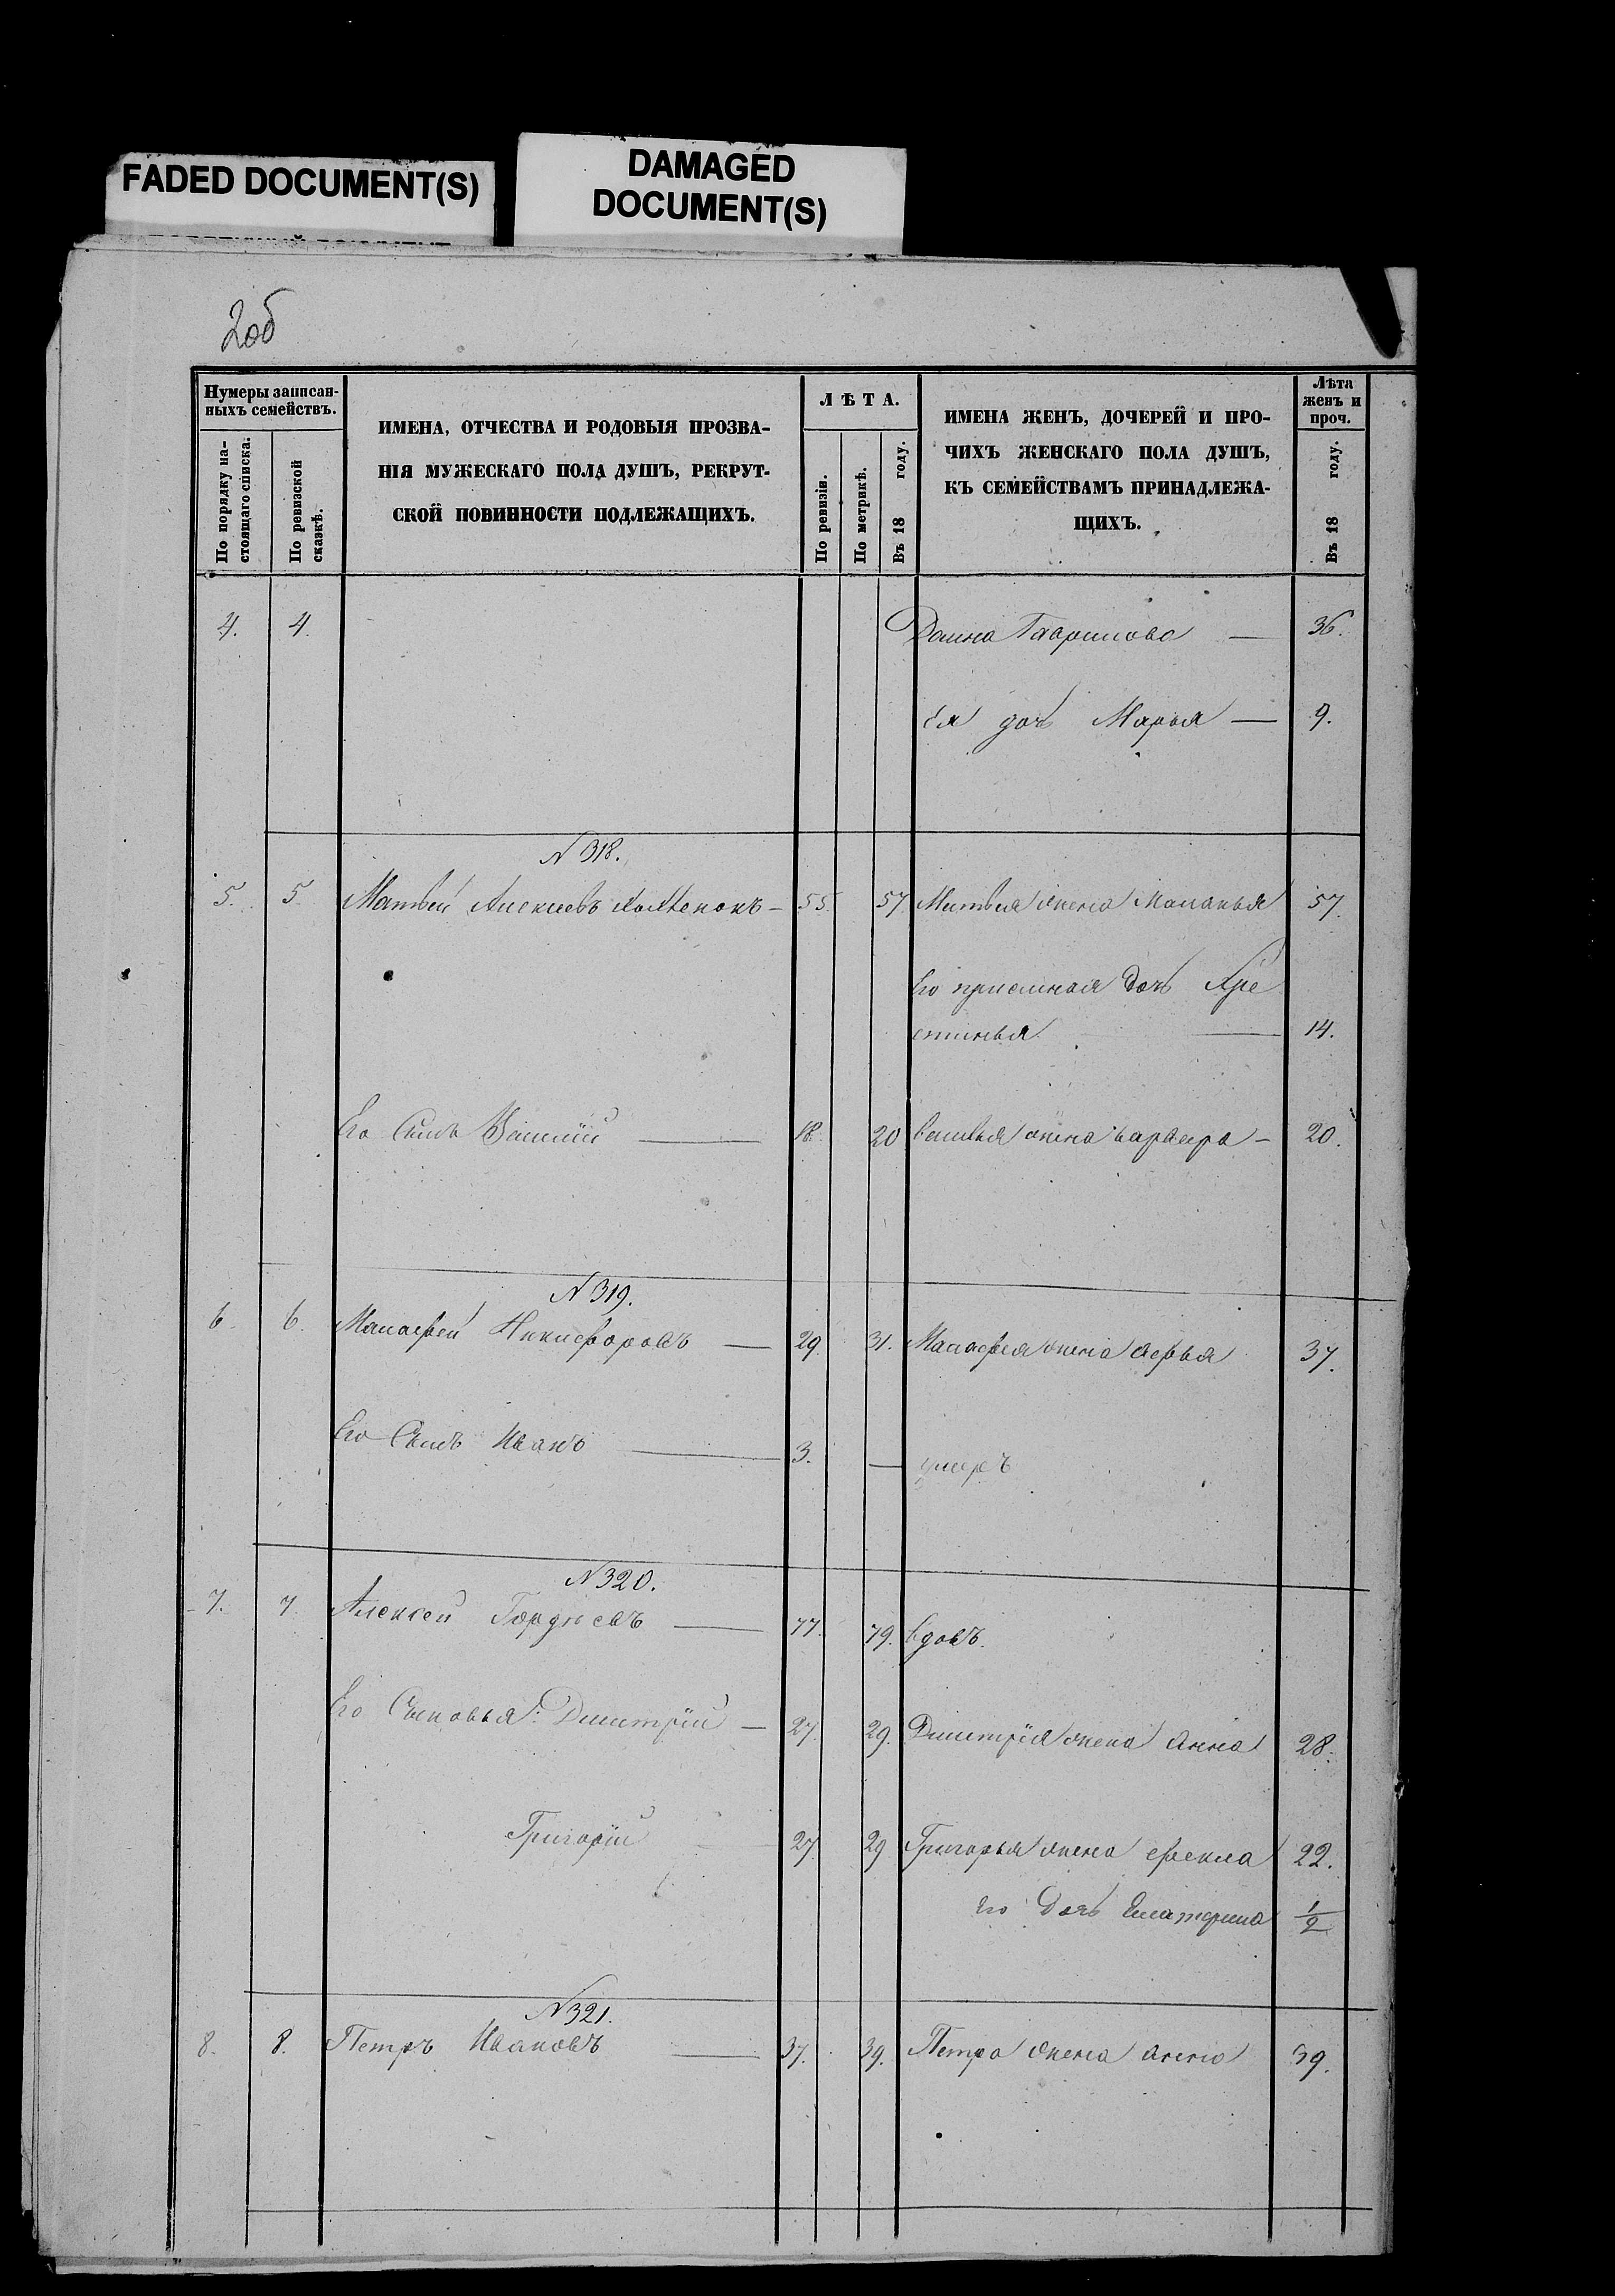 FADED DOCUMENT(S)
DAMAGED
DOCUMENT(S)
2об
Нумеры записан-
ныхъ семействъ.
По порядку на-
стоящаго списка.
По ревизской
сказкѣ.
ИМЕНА, ОТЧЕСТВА И РОДОВЫЯ ПРОЗВА-
НІЯ МУЖЕСКАГО ПОЛА ДУШЪ, РЕКРУТ-
СКОЙ ПОВИННОСТИ ПОДЛЕЖАЩИХЪ.
ЛѢТА.
По ревизіи.
По метрикѣ.
Въ 18 году.
ИМЕНА ЖЕНЪ, ДОЧЕРЕЙ И ПРО-
ЧИХЪ ЖЕНСКАГО ПОЛА ДУШЪ,
КЪ СЕМЕЙСТВАМЪ ПРИНАДЛЕЖА-
ЩИХЪ.
Лѣта
женъ и
проч.
Въ 18 году.
4. 4. Гаврилова — 36.
Ея дочь Марья — 9.
N 318.
5. 5. Матвей Алексеевъ — 55. 57 Матвея жена Маланья 57.
Его приемная дочь Хре
стинья — 14.
Его Сынъ — 18. 20 жена Варвара — 20.
N 319.
6. 6. Малафей Никифоровъ — 29. 31. Малафея жена 37.
Его Сынъ Иванъ — 3. — умеръ
N 320.
7. 7. Алексей Гордѣевъ — 77. 79. вдовъ.
Его Сыновья: Дмитрій — 27. 29. Дмитрія жена Анна 28.
Григорій — 27 29 Григорья жена Фекла 22.
Его Дочь Екатерина 1/2
N 321.
8. 8. Петръ Ивановъ — 37. 39. Петра жена Анна 39.